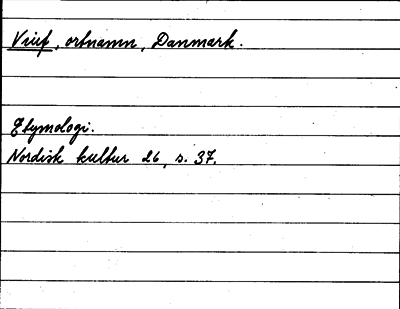 Vrust, ortnamn, Danmark.
Etymologi.
Nordisk kultur 26, s. 37.